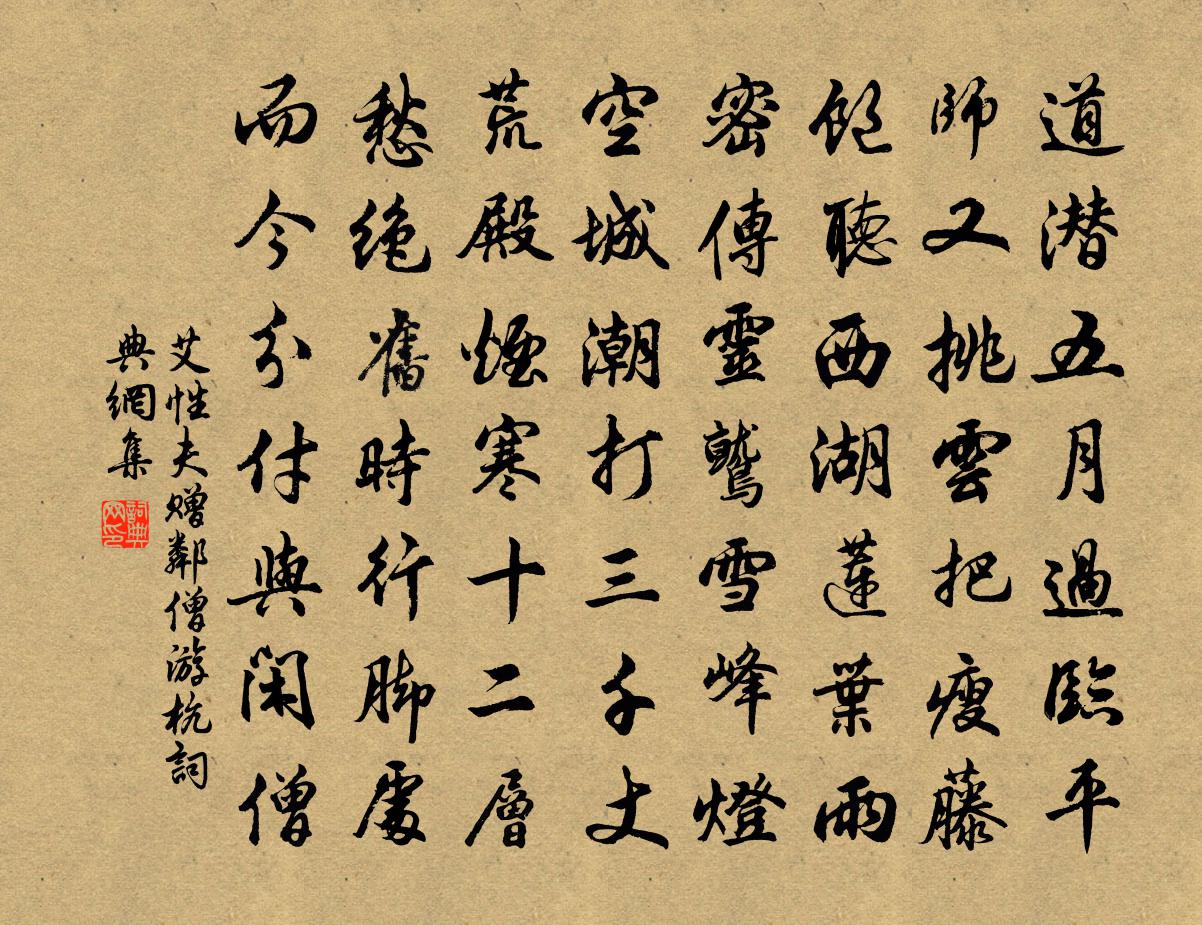 道潜五月過臨平
師又挑雲把瘦藤
飽聽西湖蓮葉雨
密傳靈鷲雪峰燈
空城潮打三千丈
荒殿煙寒十二層
愁絶舊時行脚處
而今分付與閑僧
艾性夫贈鄰僧游杭詞
典網集
詞典
网印